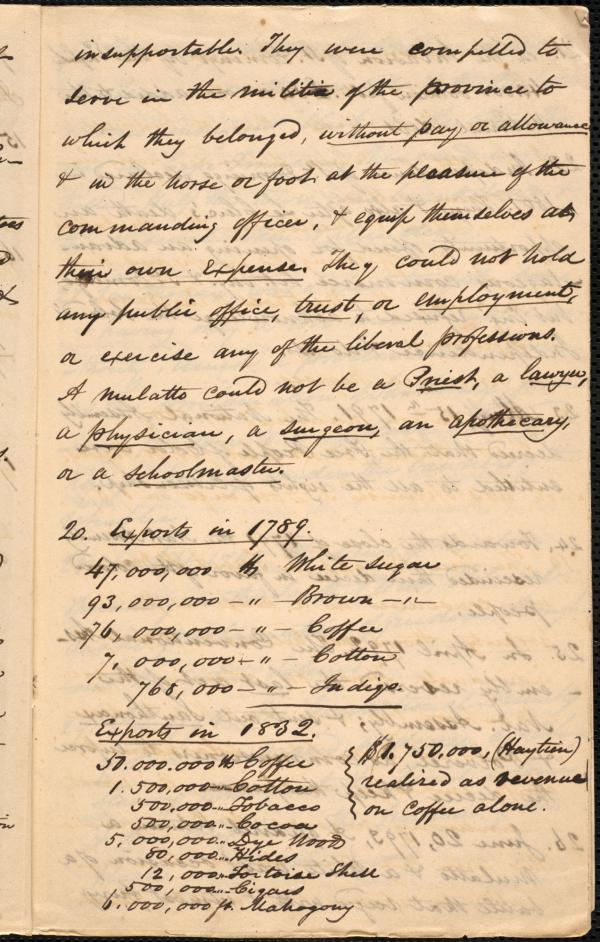 insupportable. They were compelled to
serve in the militia of the province to
which they belonged, without pay or allowance
& in the horse or foot at the pleasure of the
commanding officer, & equip themselves at
their own expense. They could not hold
any public office, trust, or employment,
or exercise any of the liberal professions.
A mulatto could not be a Priest, a lawyer,
a physician, a surgeon, an apothecary,
or a schoolmaster.
20. Exports in 1789.
47,000,000 lb White sugar
93,000,000 — " — Brown — " —
76,000,000 — " — Coffee
7,000,000 — " — Cotton
768,000 — " — Indigo.
Exports in 1832.
50.000.000 lb Coffee
1.500,000 " Cotton
500,000 " Tobacco
500,000 " Cocoa
5,000,000 " Dye Wood
80,000 " Hides
12,000 " Tortoise Shell
500,000 " Cigars
6.000,000 ft. Mahogony
$1.750,000, (Haytien)
realized as revenue
on coffee alone.